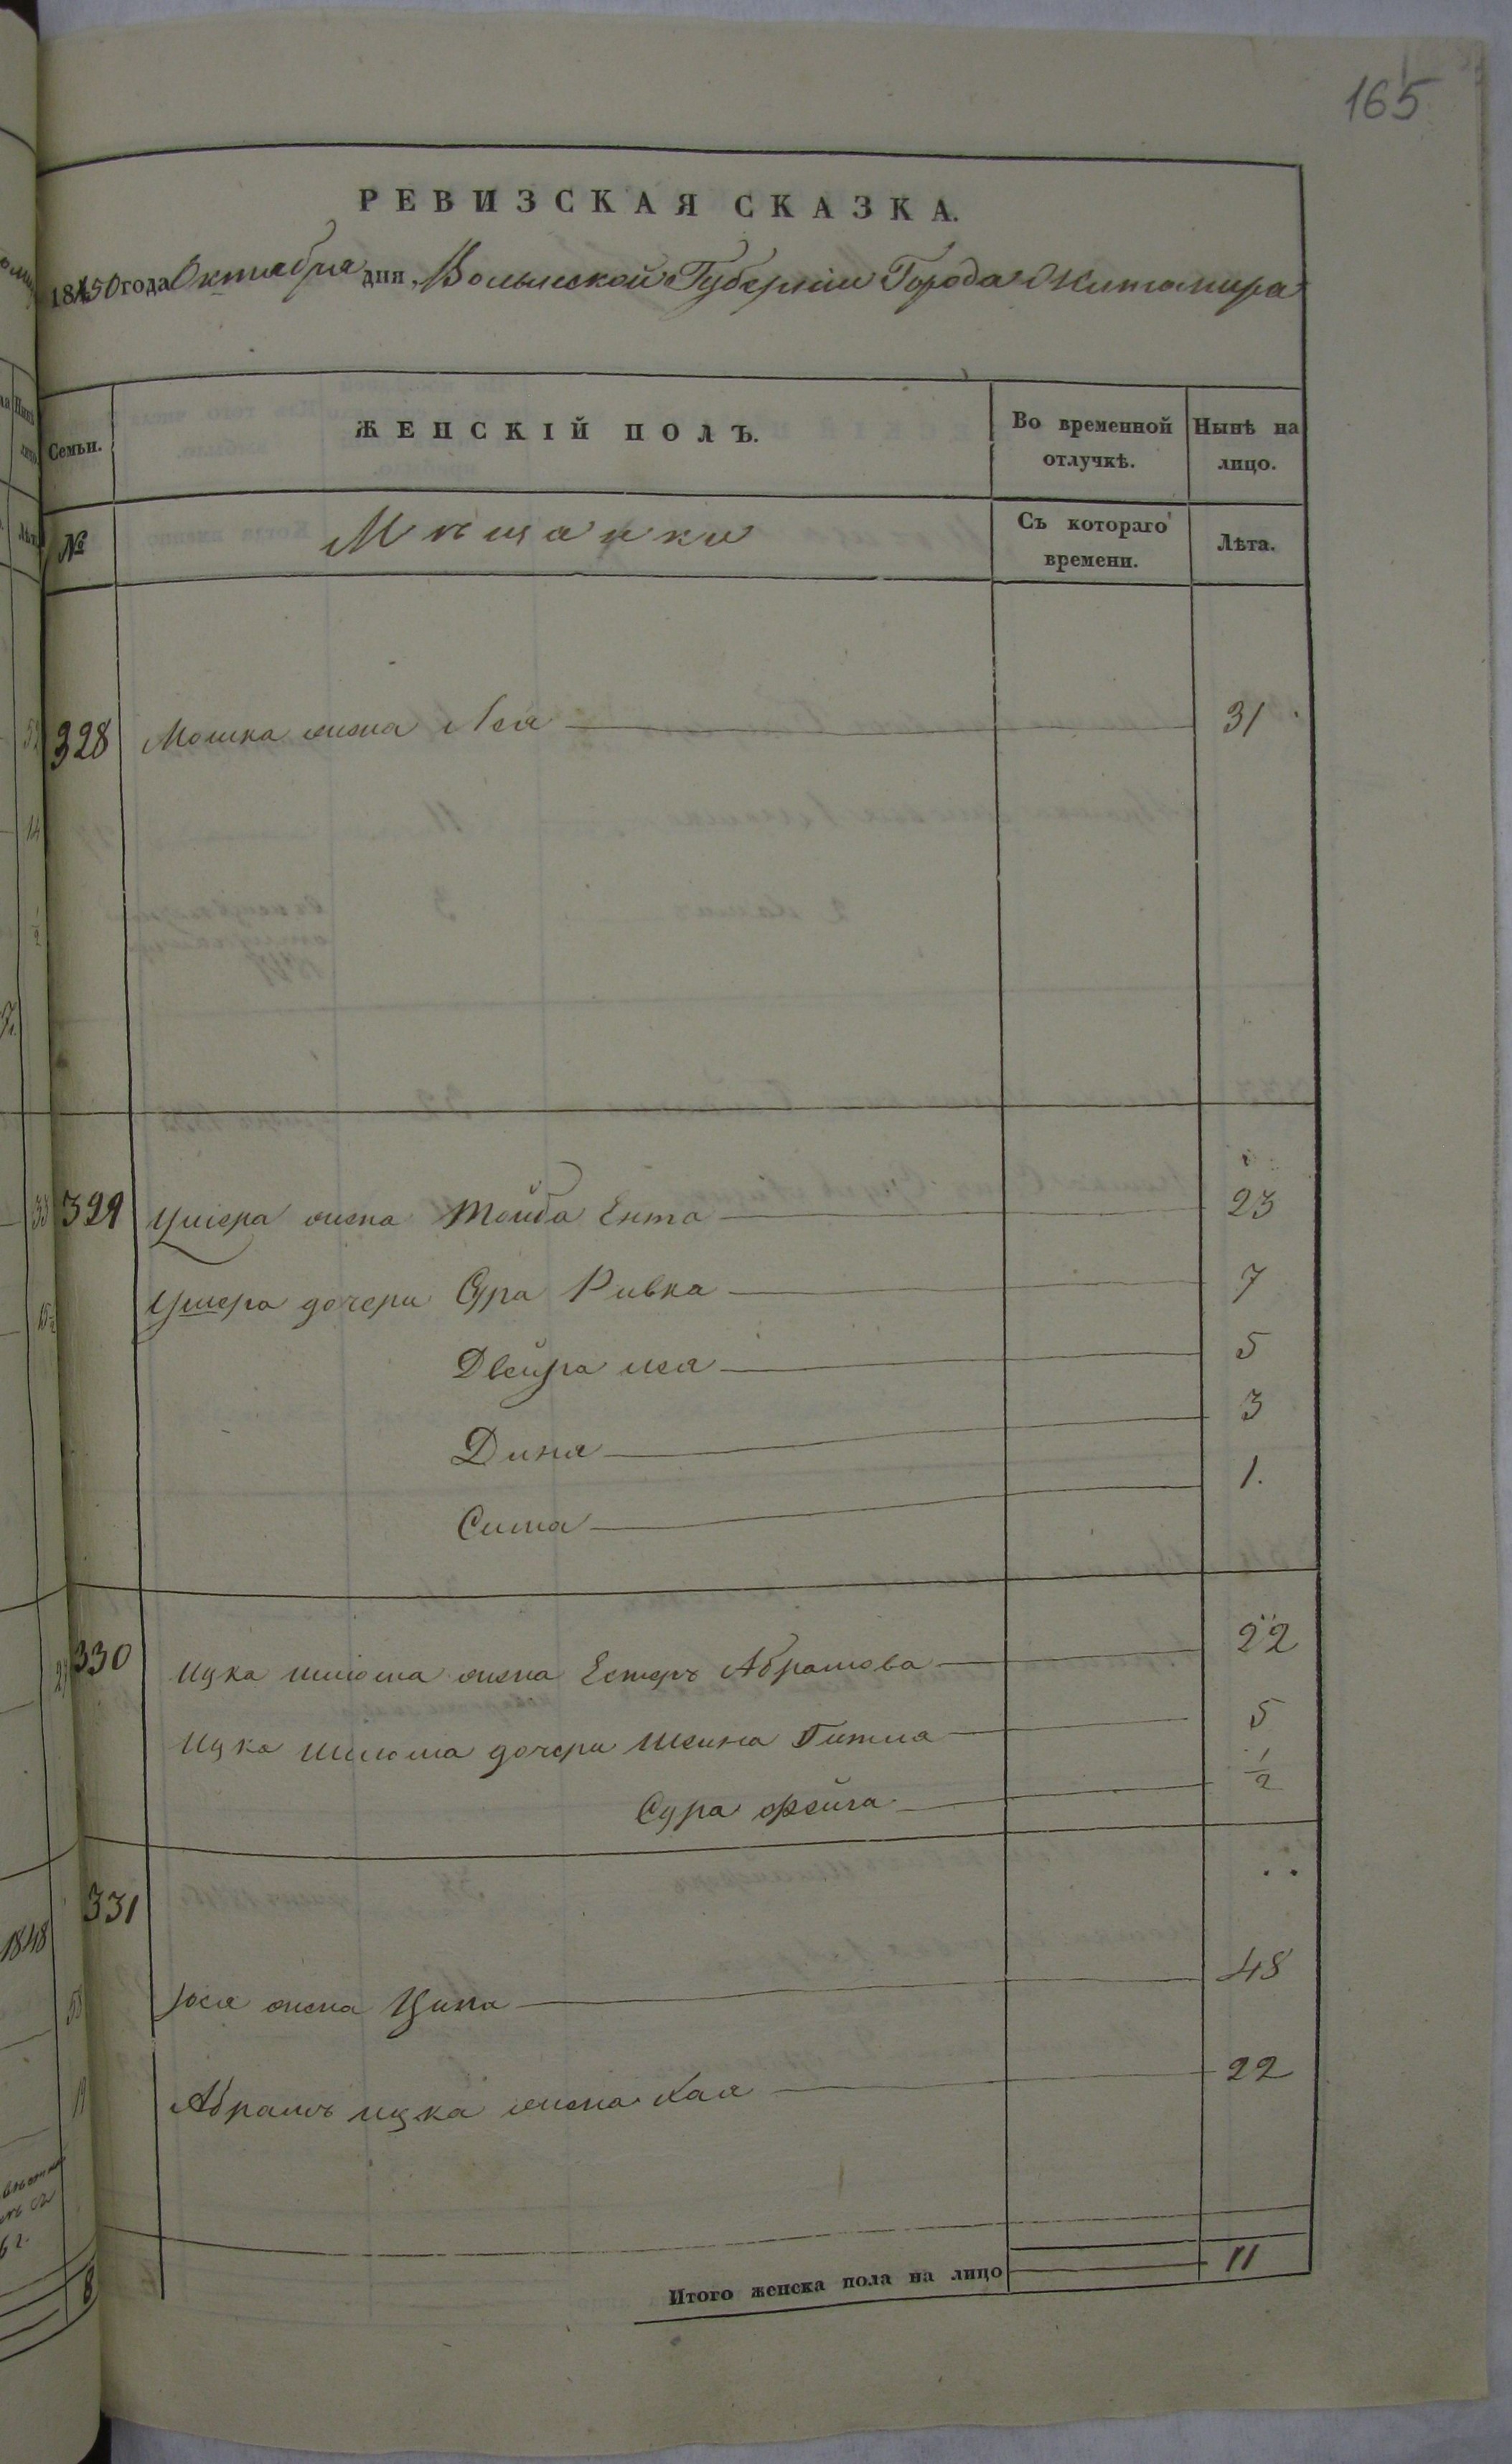 165
РЕВИЗСКАЯ СКАЗКА.
1850 года Октября дня, Волынской Губерніи Города Житомира
Семьи.
ЖЕНСКІЙ ПОЛЪ.
Во временной отлучкѣ.
Нынѣ на лицо.
№
Мѣщанки
Съ котораго времени.
Лѣта.
328 Мошка жена Лея 31
329 Ушера жена Тойба Ента 23
Ушера дочери Сура Ривка 7
Двейра лея 5
Дина 3
Сима 1.
330 Ицка шлюма жена Естеръ Абрамова 22
Ицка шлюма дочери Шейна Гитла 5
Сура фейга 1/2
331
Іося жена Ципа 48
Абрамъ ицка жена Хая 22
Итого женска пола на лицо 11